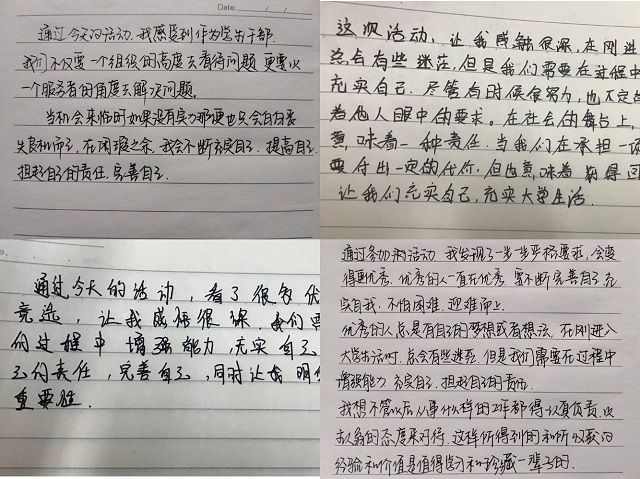 Date:
通过今天的活动,我感受到作为学生干部,
我们不仅要一个组织的高度去看待问题,更要以
一个服务者的角度去解决问题。
当机会来临时如果没有实力那便也只会白白丧
失良机而已,在闲暇之余,我会不断充实自己,提高自己
担起自己的责任,完善自己.
这次活动,让我感触很深,在刚进
总会有些迷茫,但是我们需要在过程中
充实自己.尽管有时候很努力,也不定
着他人眼中的要求。在社会的舞台上,
意味着一种责任.当我们在承担一
要付出一定的代价,但也意味着获得
让我们充实自己,充实大学生活.
通过今天的活动,看了很多优
竞选,让我感悟很深,我们要
的过程中增强能力,充实自己
己的责任,完善自己,同时让我明
重要性.
通过参加的活动,我发现了一步一步严格要求,会变
得更优秀.优秀的人一直在优秀.要不断完善自己充
实自我.不怕困难.迎难而上.
优秀的人总是有自己的梦想或者想法,在刚进入
大学生活时,总会有些迷茫.但是我们需要在过程中
增强能力 充实自己.担起自己的责任.
我想不管以后从事什么样的工作都得认真负责.以
的态度来对待.这样所得到的和所收获的
经验和价值是值得学习和珍藏一辈子的.